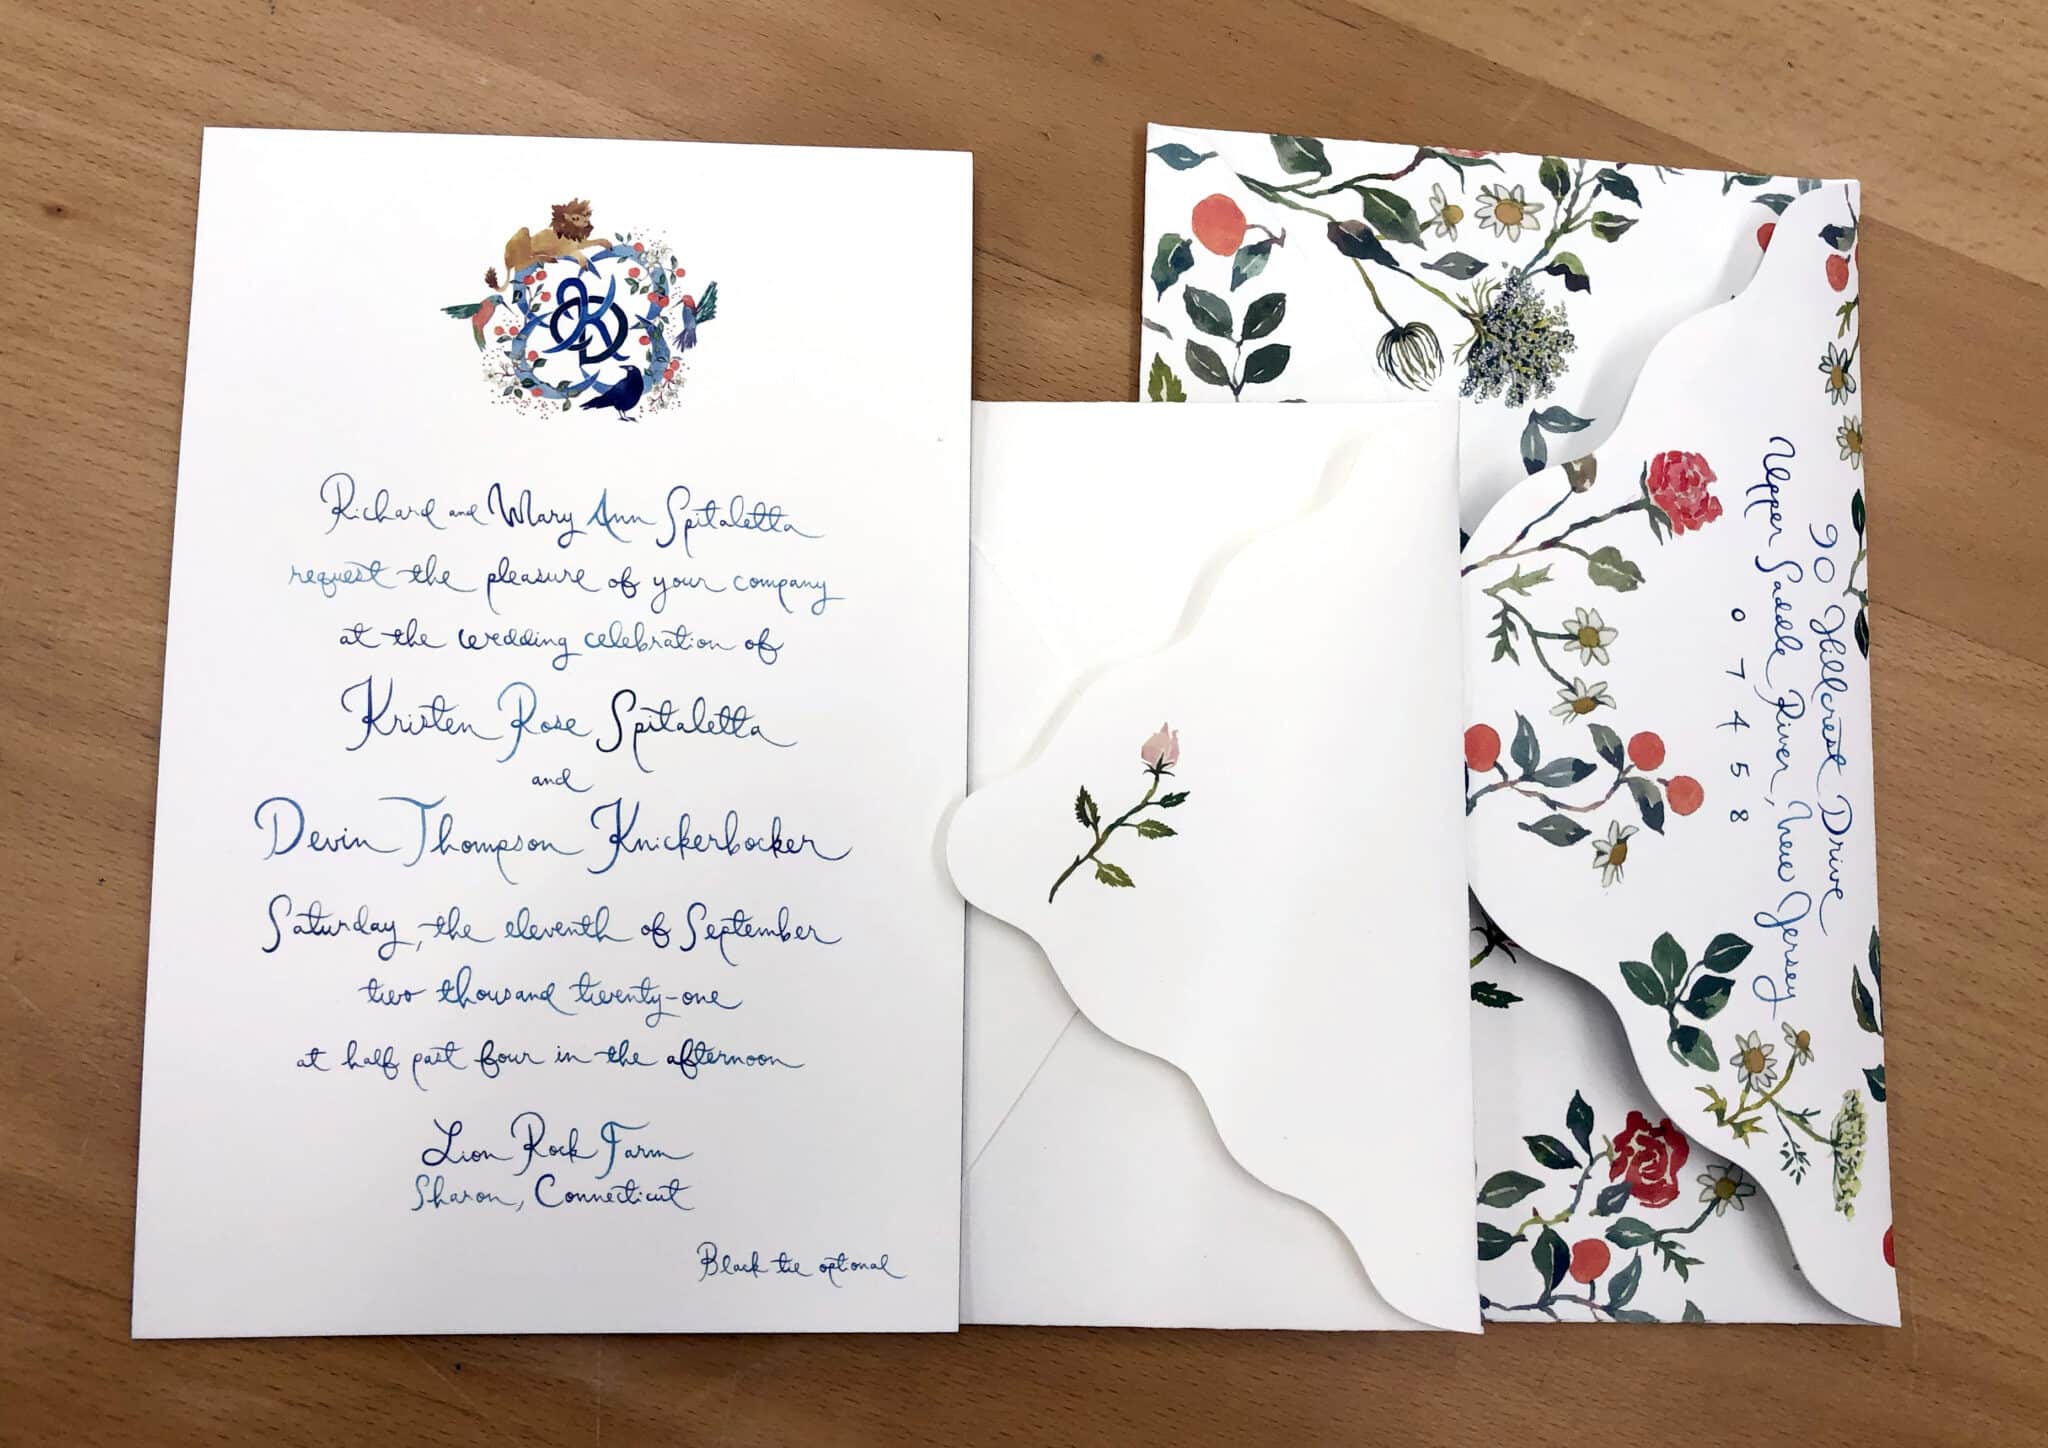 Richard and Mary Ann Spitaletta
request the pleasure of your company
at the wedding celebration of
Kristen Rose Spitaletta
and
Devin Thompson Knickerbocker
Saturday, the eleventh of September
two thousand twenty-one
at half past four in the afternoon
Lion Rock Farm
Sharon, Connecticut
Black tie optional
90 Hillcrest Drive
Upper Saddle River, New Jersey
07458